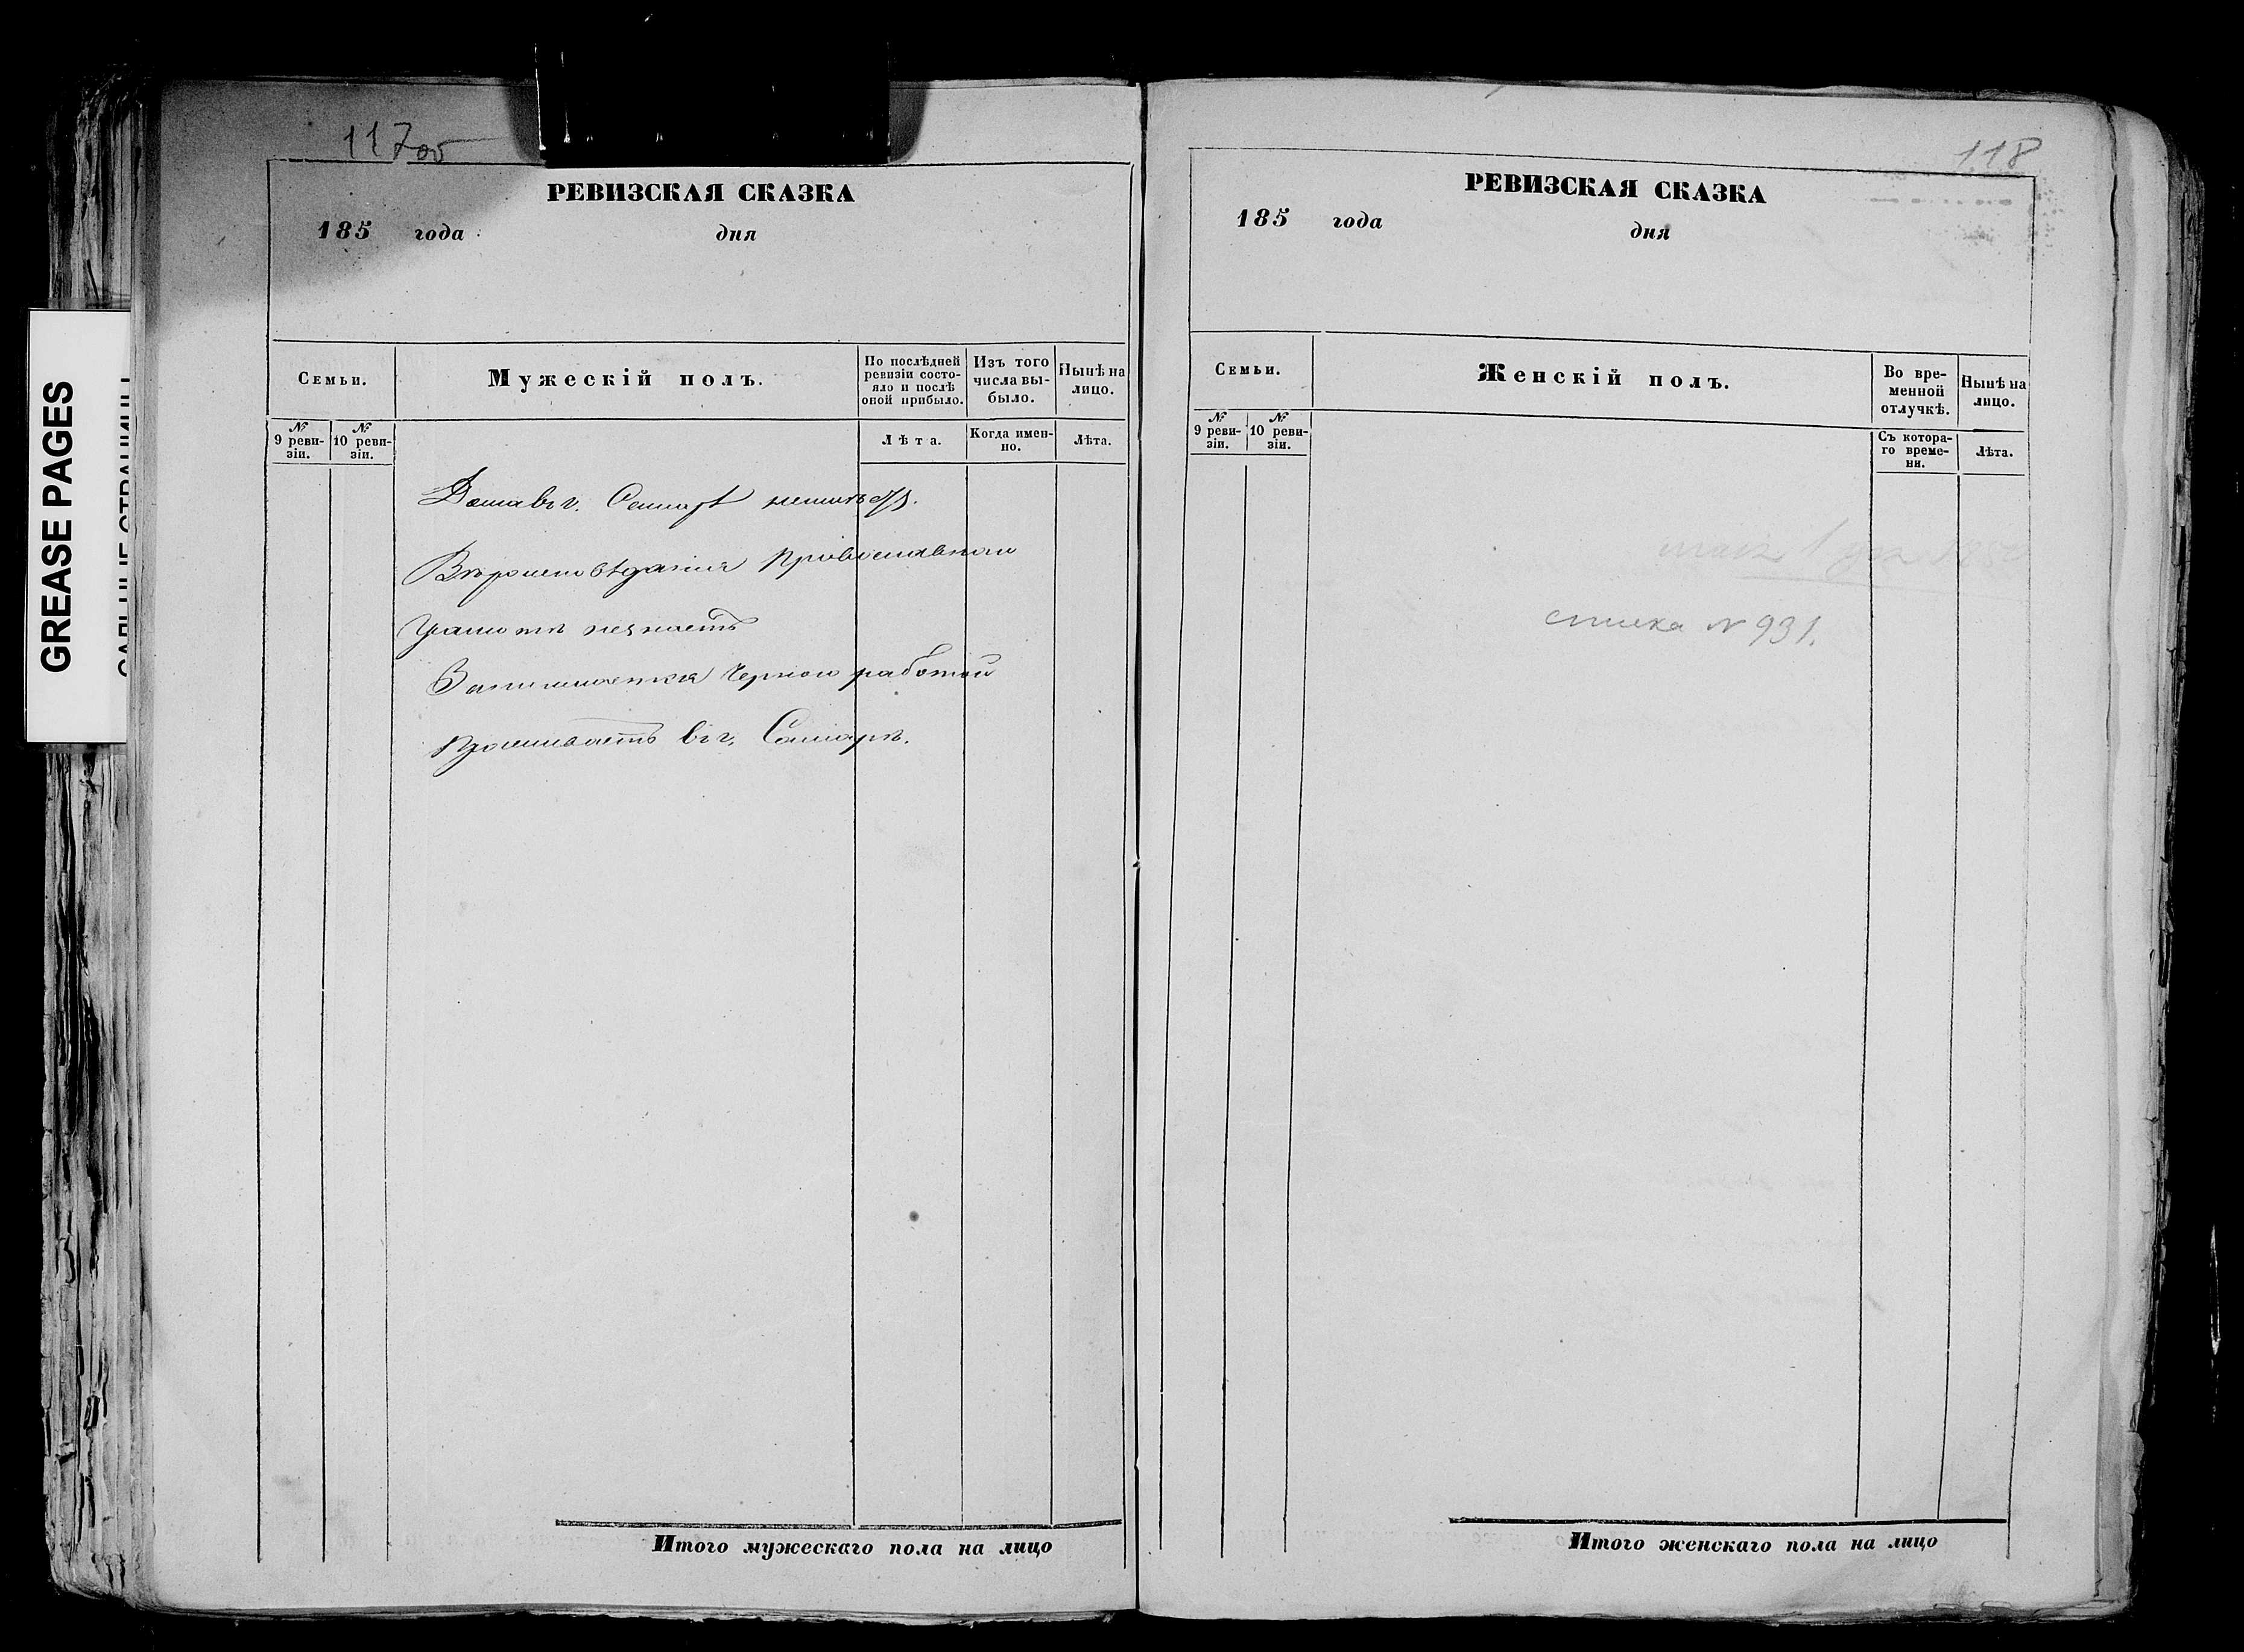 GREASE PAGES
117об
РЕВИЗСКАЯ СКАЗКА
185 года дня
Семьи.
Мужескій полъ.
По послѣдней ревизіи состо-
яло и послѣ
оной прибыло.
Изъ того
числа вы-
было.
Нынѣ на
лицо.
№ 9 реви-
зіи.
№ 10 реви-
зіи.
Лѣта.
Когда имен-
но.
Лѣта.
Дома въ г. Самарѣ неимѣетъ.
Вѣроисповѣданія Православнаго
Грамотѣ незнаетъ
Занимается Черною работой
Проживаетъ въ г. Самарѣ.
Итого мужескаго пола на лицо
118
РЕВИЗСКАЯ СКАЗКА
185 года дня
Семьи.
Женскій полъ.
Во вре-
менной
отлучкѣ.
Нынѣ на
лицо.
№ 9 реви-
зіи.
№ 10 реви-
зіи.
Съ котора-
го време-
ни.
Лѣта.
№ 931.
Итого женскаго пола на лицо